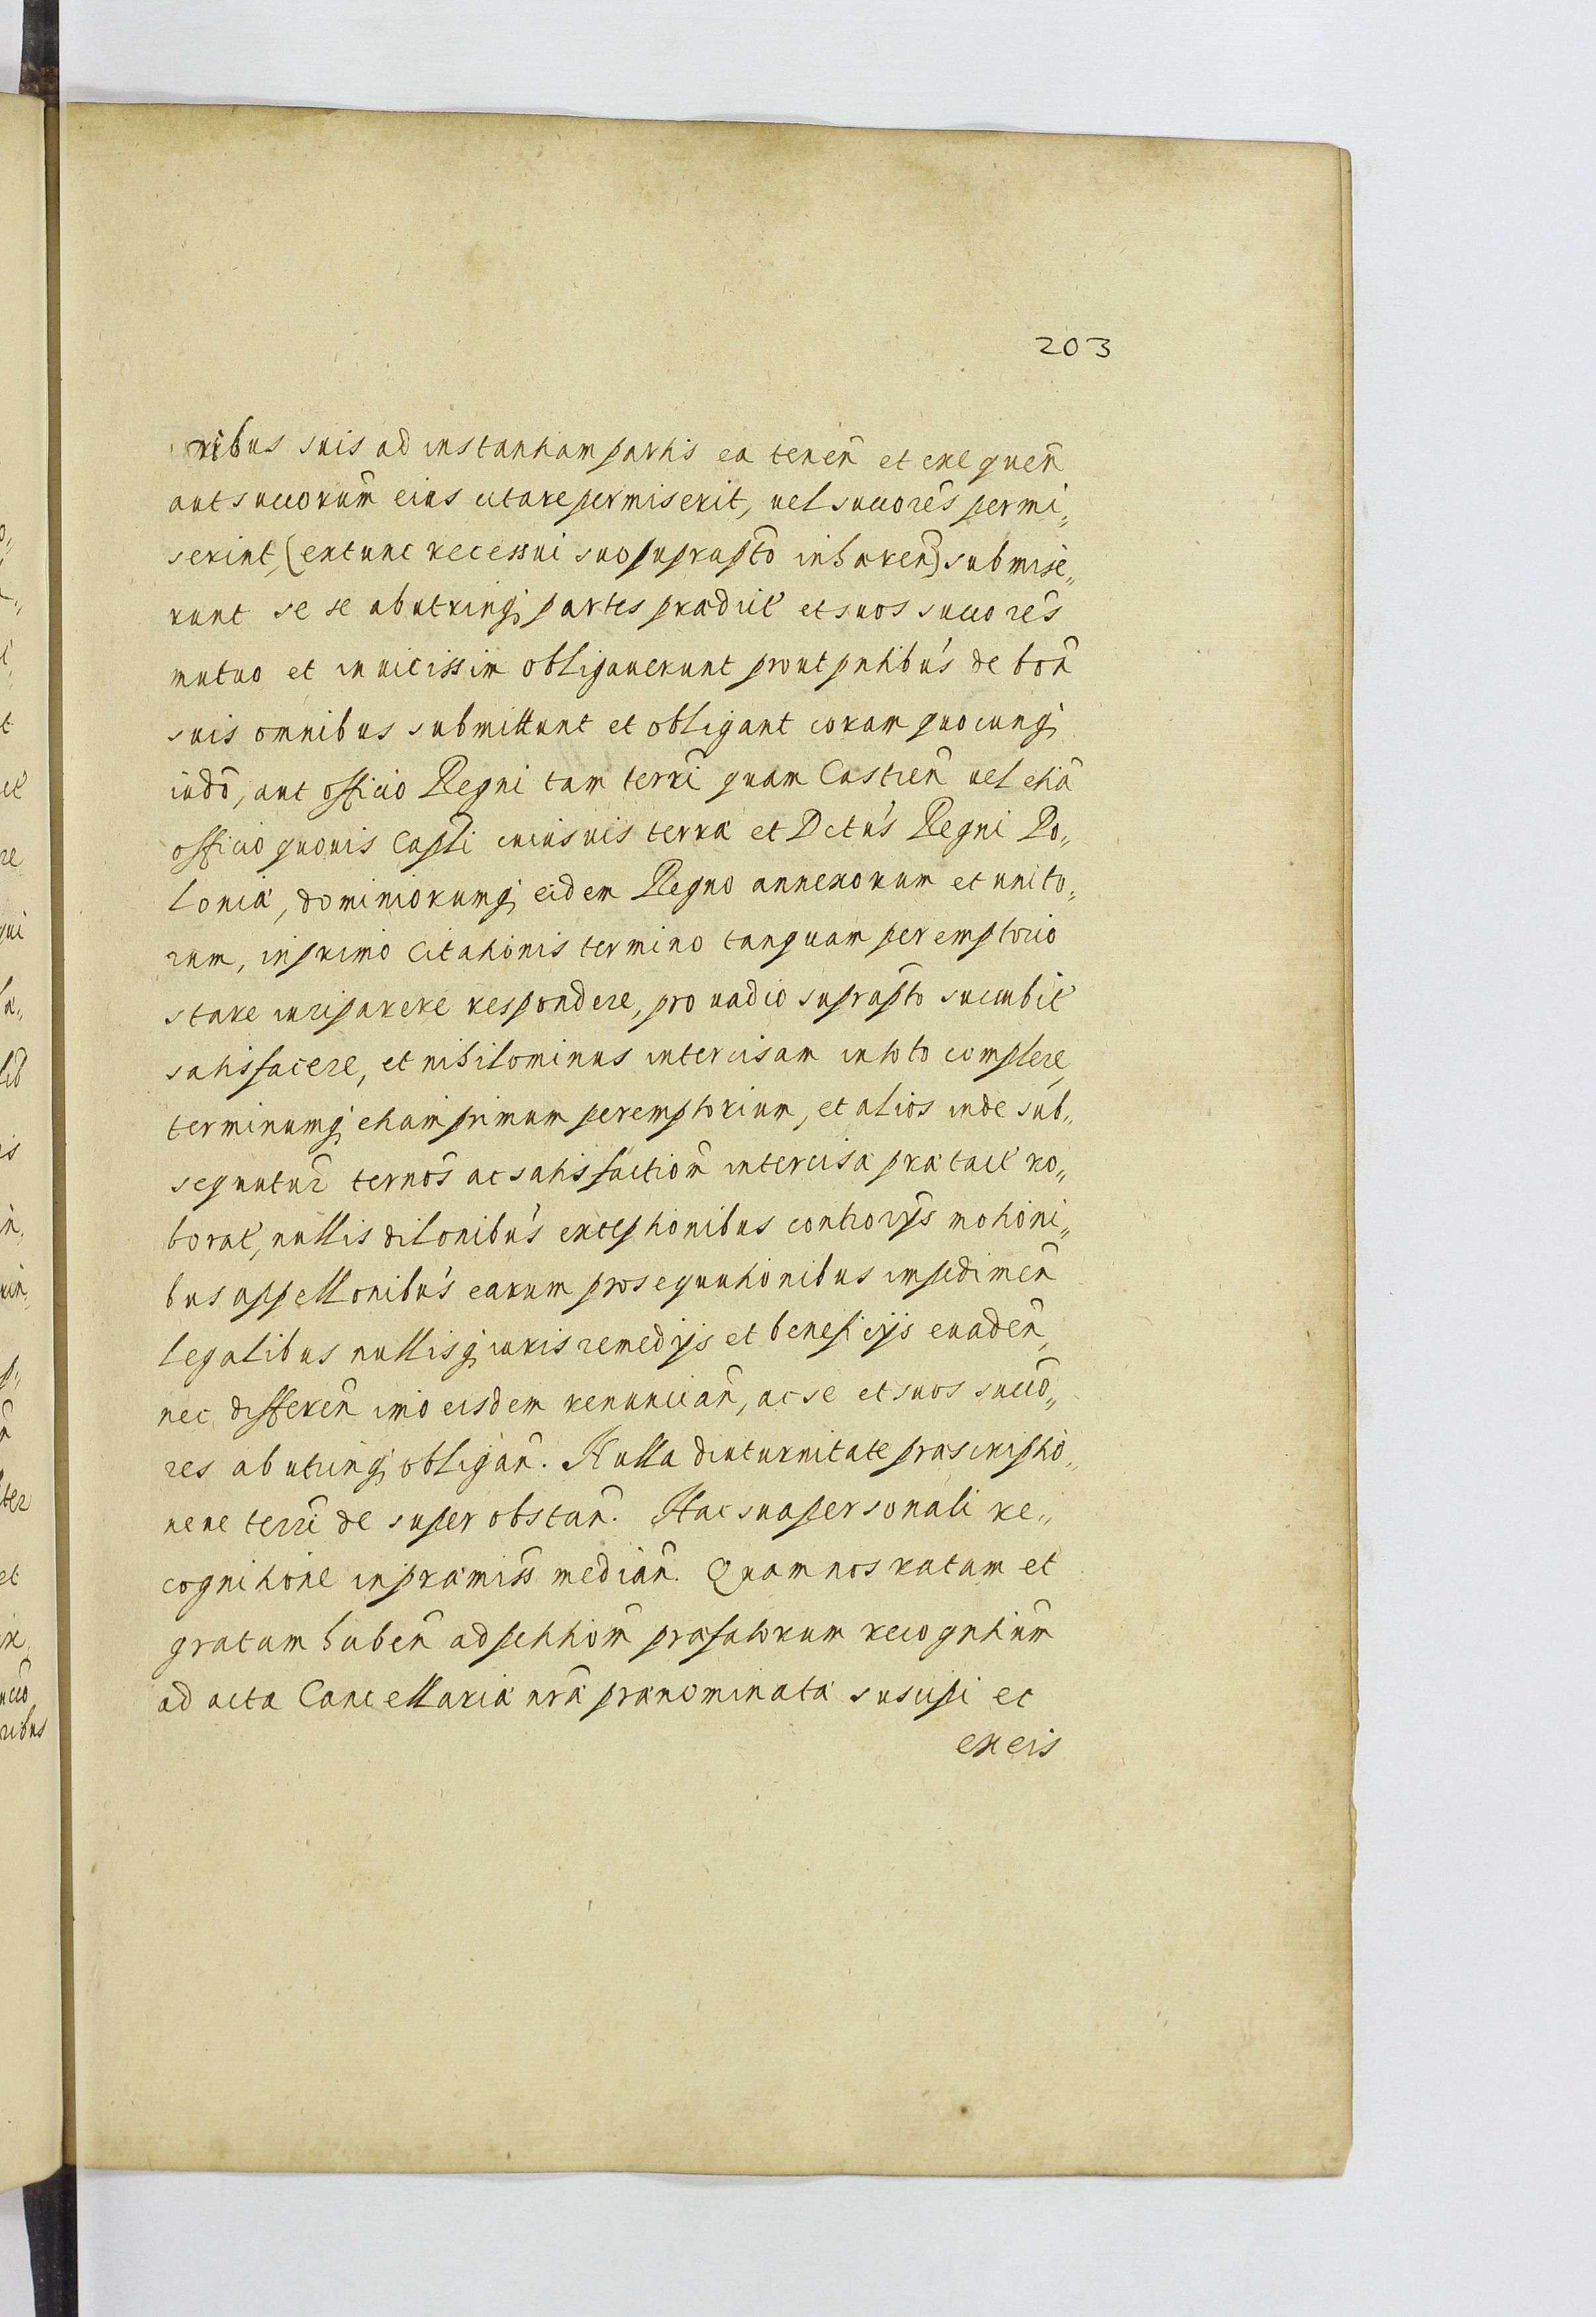 203
ribus suis ad instantiam partis ea tenen̄ et exequen̄
aut successorum̄ eius citare permiserit, uel succores̄ permi„
serint, (extunc recessui suo suprapto̅ inhæren̄) submise„
runt se se ab utrinq; partes prædict et suos succores̄
mutuo et inuicissim obligauerunt prout pntibus̄ de bon̄
suis omnibus submittunt et obligant coram quocunq;
iudō, aut officio Regni tam terrī quam Castren̄ uel etiā
officio quouis Capłi cuiusuis terræ et Dctus̄ Regni Po„
loniæ, dominiorumq; eidem Regno annexorum et unito„
rum, in primo Citationis termino tanquam peremptorio
stare iuri parere respondere, pro uadio suprapto̅ succubit
satisfacere, et nihilominus intercisam in toto complere,
terminumq; etiam primum peremptorium, et alios inde sub„
sequutur̄ ternos̄ ac satisfaction̄ intercisæ prætact ro„
borat, nullis dilonibus̄ exceptionibus controrijs motioni„
bus appellonibus̄ earum prosequutionibus impedimen̄
legalibus nullisq; iuris remedijs et beneficijs euaden̄,
nec differen̄ imo eisdem renuncian̄, ac se et suos succo̅„
res ab utrinq; obligan̄. Nulla diuturnitate præscriptio„
nene terrī de super obstan̄. Hac sua personali re„
cognitione in præmiss̄ median̄. Quam nos ratam et
gratam haben̄ ad petitiom̄ præfatorum recogntium̄
ad acta Cancellariæ nræ̅ prænominatæ suscipi et
ex eis